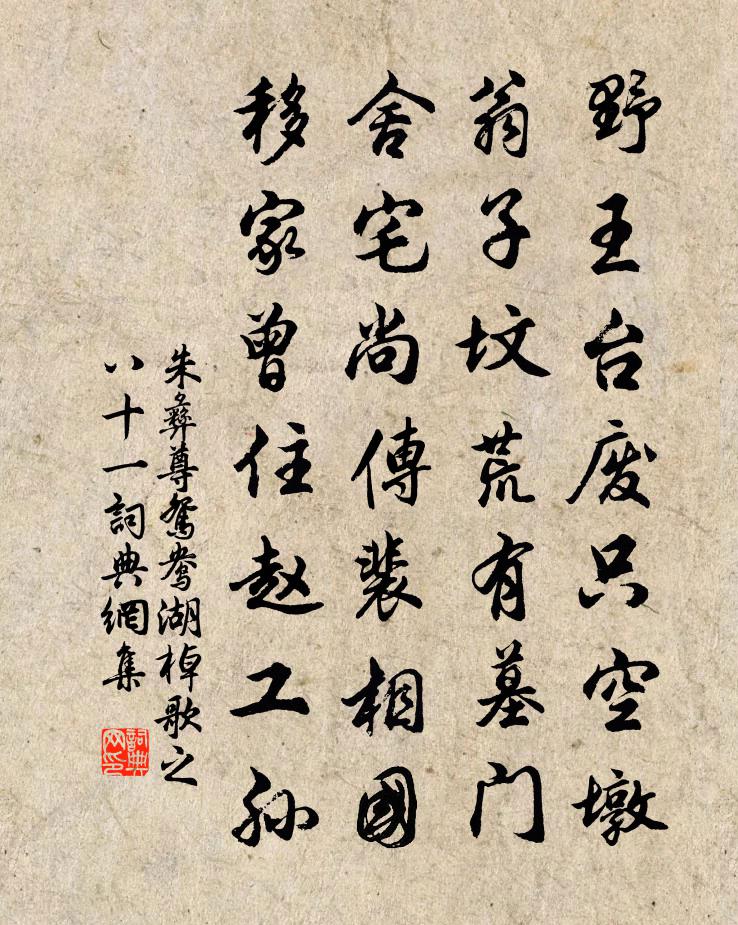 野王台废只空墩
翁子坟荒有墓门
舍宅尚傳裴相國
移家曾住赵工孙
朱彝尊鴛鸯湖棹歌之
八十一詞典網集
詞典
网印